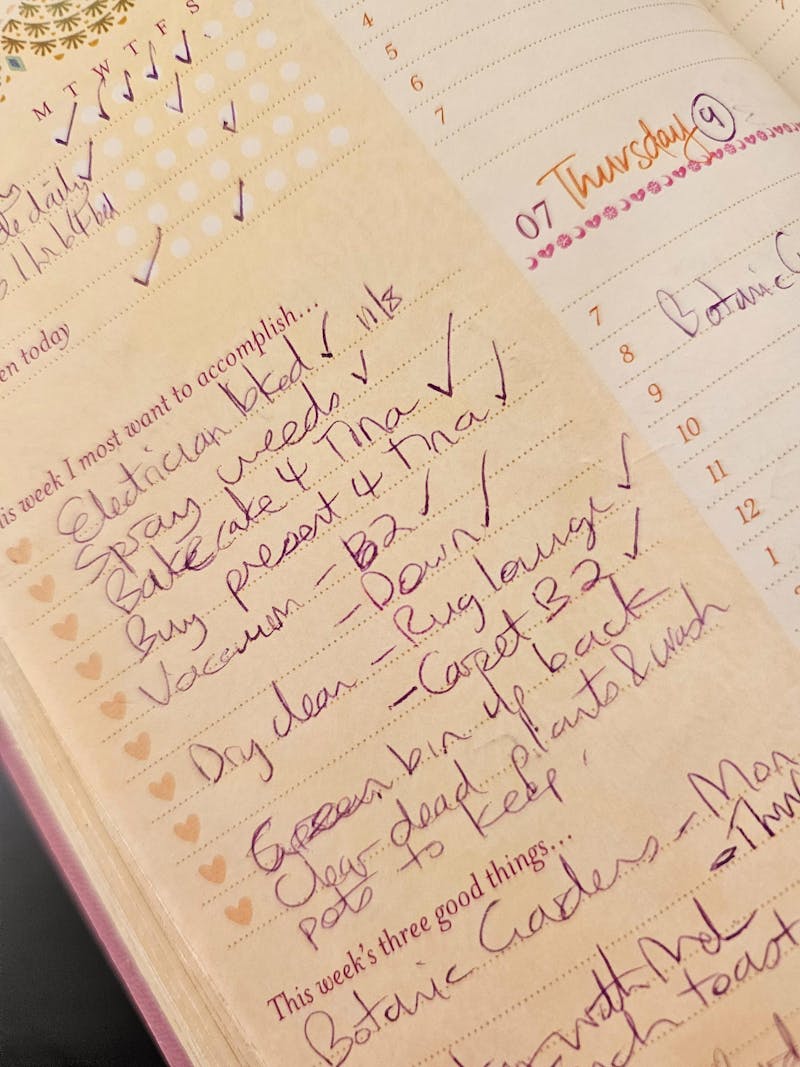 M T W T F S
de daily
1hr b4 bd
en today
his week I most want to accomplish...
Electrician bked ✓ 11/8
Spray weeds ✓
Bake cake 4 Tina ✓
Buy present 4 Tina ✓
Vacuum - B2 ✓
- Down ✓
Dry clean - Rug lounge ✓
- Carpet B2 ✓
Green bin up back
Clear dead plants & wash
pots to keep
This week's three good things...
Botanic Gardens - Mon
- Thu
with Md
toast
4
5
6
7
07 Thursday 9
7
8 Botanic G
9
10
11
12
1